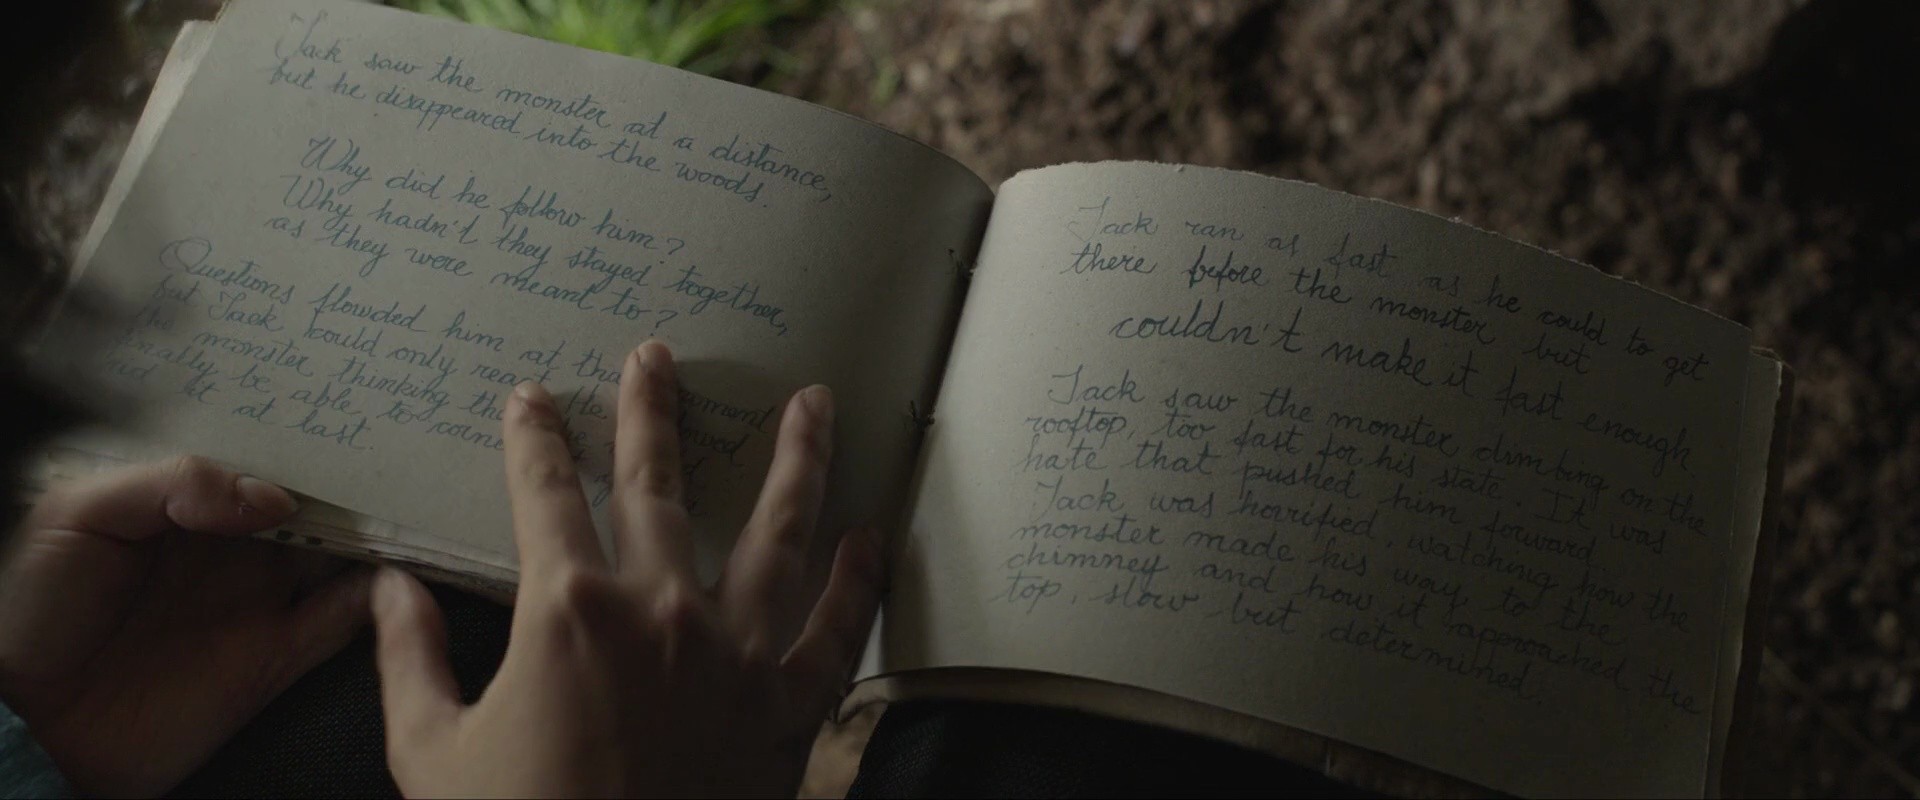 Jack saw the monster at a distance,
but he disappeared into the woods.
Why did he follow him?
Why hadn't they stayed together,
as they were meant to?
Questions flowded him at that
but Jack could only react He
the monster thinking
be able to
it at last.
Jack ran as fast as he could to get
there before the monster but
couldn't make it fast enough
Jack saw the monster climbing on the
rooftop, too fast for his state. It was
hate that pushed him forward.
Jack was horrified, watching how the
monster made his way to the
chimney and how it approached the
top, slow but determined.